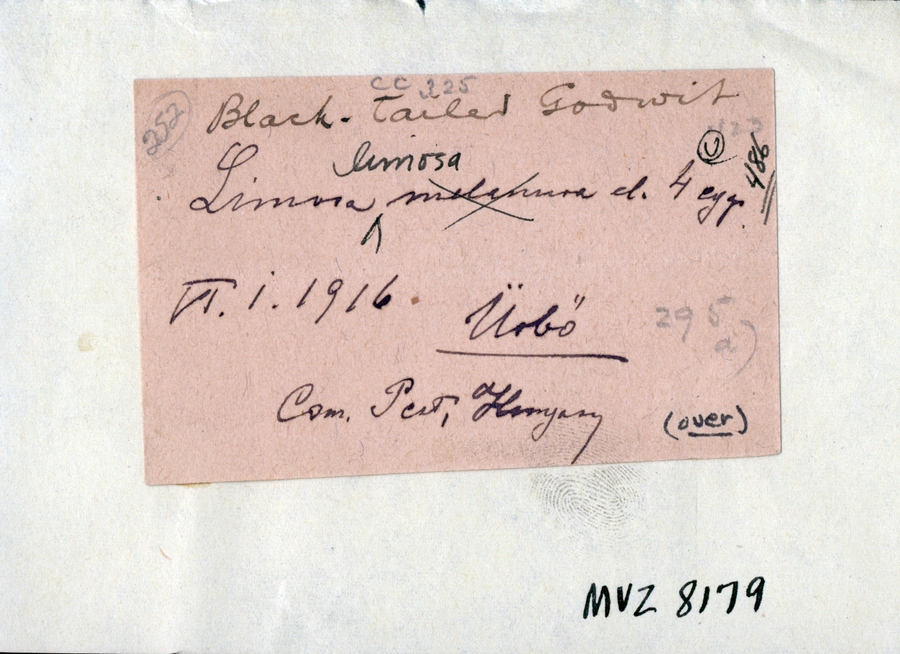 CC 225
252
Black-Tailed Godwit
limosa
Limosa melanura cl. 4 egg.
U
486
VI. 1. 1916.
Ürbö
295
a)
Com. Pest, Hungary
(over)
MVZ 8179